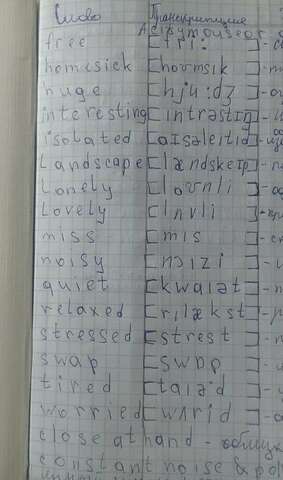 Слово Транскрипция
free [fri:]
homesick [hoʊmsik]
huge [hju:dʒ]
interesting [intrəstiŋ]
isolated [aisəleitid]
Landscape [lændskeip]
Lonely [loʊnli]
Lovely [lʌvli]
miss [mis]
noisy [nɔizi]
quiet [kwaiət]
relaxed [rilækst]
stressed [strest]
swap [swɒp]
tired [taiəd]
worried [wʌrid]
close at hand -
constant noise &